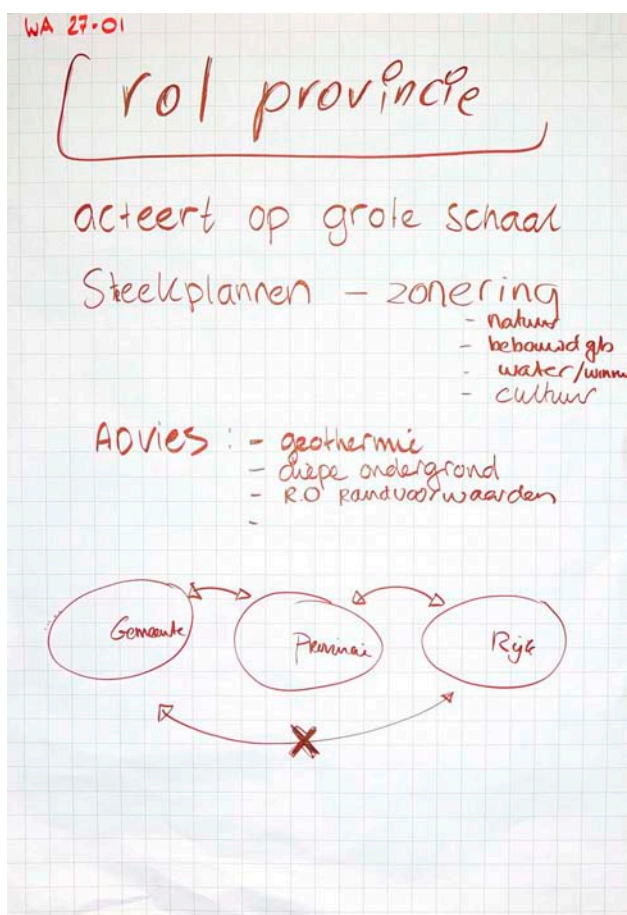 WA 27-01
rol provincie
acteert op grote schaal
Steekplannen - zonering
- natuur
- bebouwd gb
- water/winn
- cultuur
Advies : - geothermie
- diepe ondergrond
- R.O randvoorwaarden
-
Gemeente
Provincie
Rijk
X